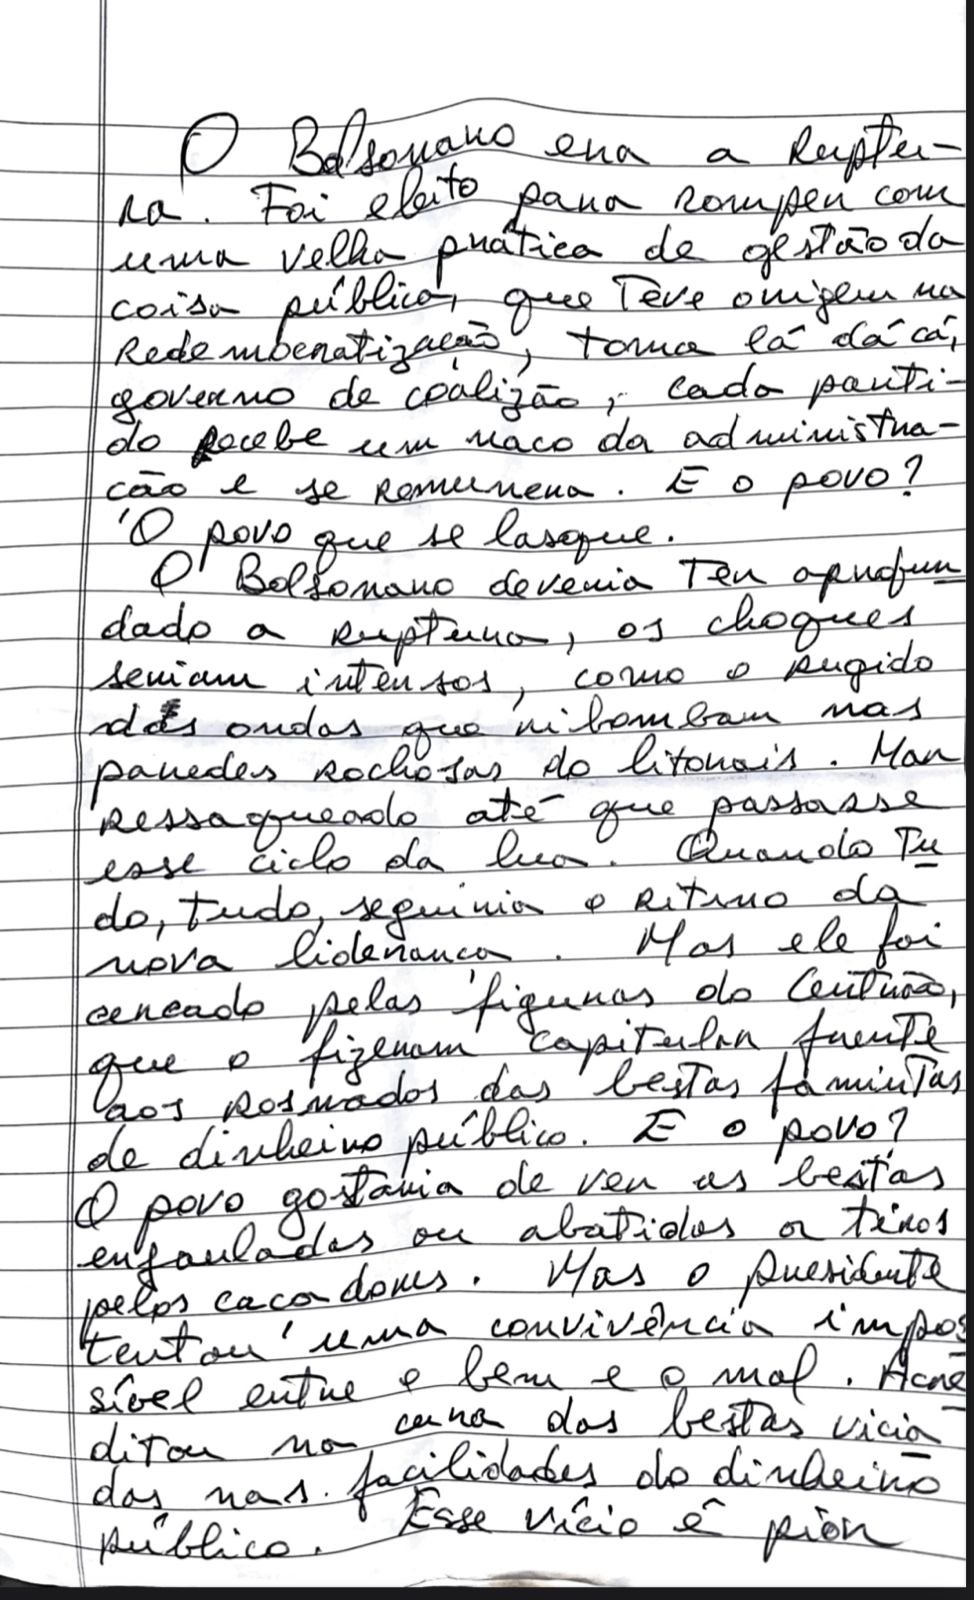 O Bolsonaro era a Ruptu-
ra. Foi eleito para romper com
uma velha prática de gestão da
coisa pública, que Teve origem na
Redemocratização, toma lá dá cá,
governo de coalizão, cada parti-
do recebe um naco da administra-
cão e se remunera. E o povo?
O povo que se lasque.
O Bolsonaro deveria Ter aprofun
dado a ruptura, os choques
seriam intensos, como o rugido
das ondas que ribombam nas
paredes rochosas do litorais. Mar
ressaqueado até que passasse
esse ciclo da lua. Quando Tu
do, tudo, seguiria o ritmo da
nova liderança. Mas ele foi
cercado pelas figuras do Centrão,
que o fizeram capitular frente
aos rosnados das bestas famintas
de dinheiro público. E o povo?
O povo gostaria de ver as bestas
enjauladas ou abatidas a tiros
pelos cacadores. Mas o presidente
tentou uma convivência impos
sível entre o bem e o mal. Acre
ditou na cura das bestas vicia
das nas facilidades do dinheiro
público. Esse vício é pior